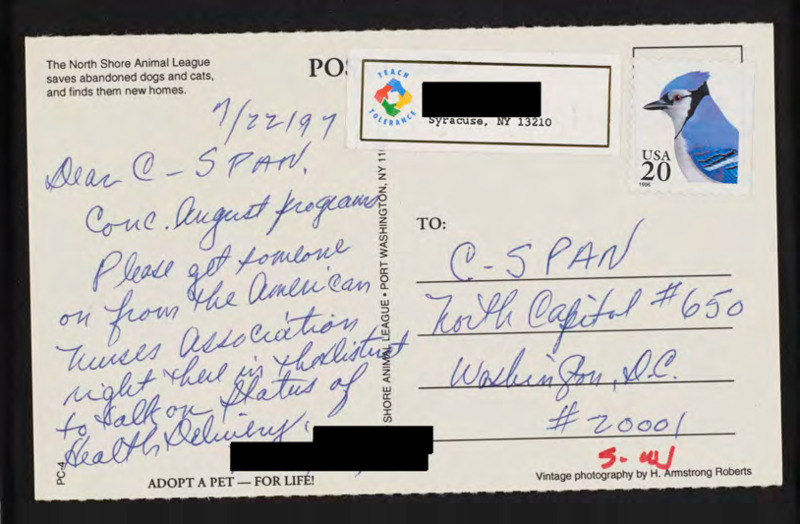 The North Shore Animal League
saves abandoned dogs and cats,
and finds them new homes.
POS
TEACH
TOLERANCE
Syracuse, NY 13210
USA
20
1996
7/22/97
Dear C-SPAN.
Conc. August programs
Please get someone
on from the American
Nurses Association
right there in the District
to talk on Status of
Health Delivery.
SHORE ANIMAL LEAGUE • PORT WASHINGTON, NY 11
TO:
C-SPAN
North Capitol #650
Washington, D.C.
#20001
PC-4
ADOPT A PET — FOR LIFE!
Vintage photography by H. Armstrong Roberts